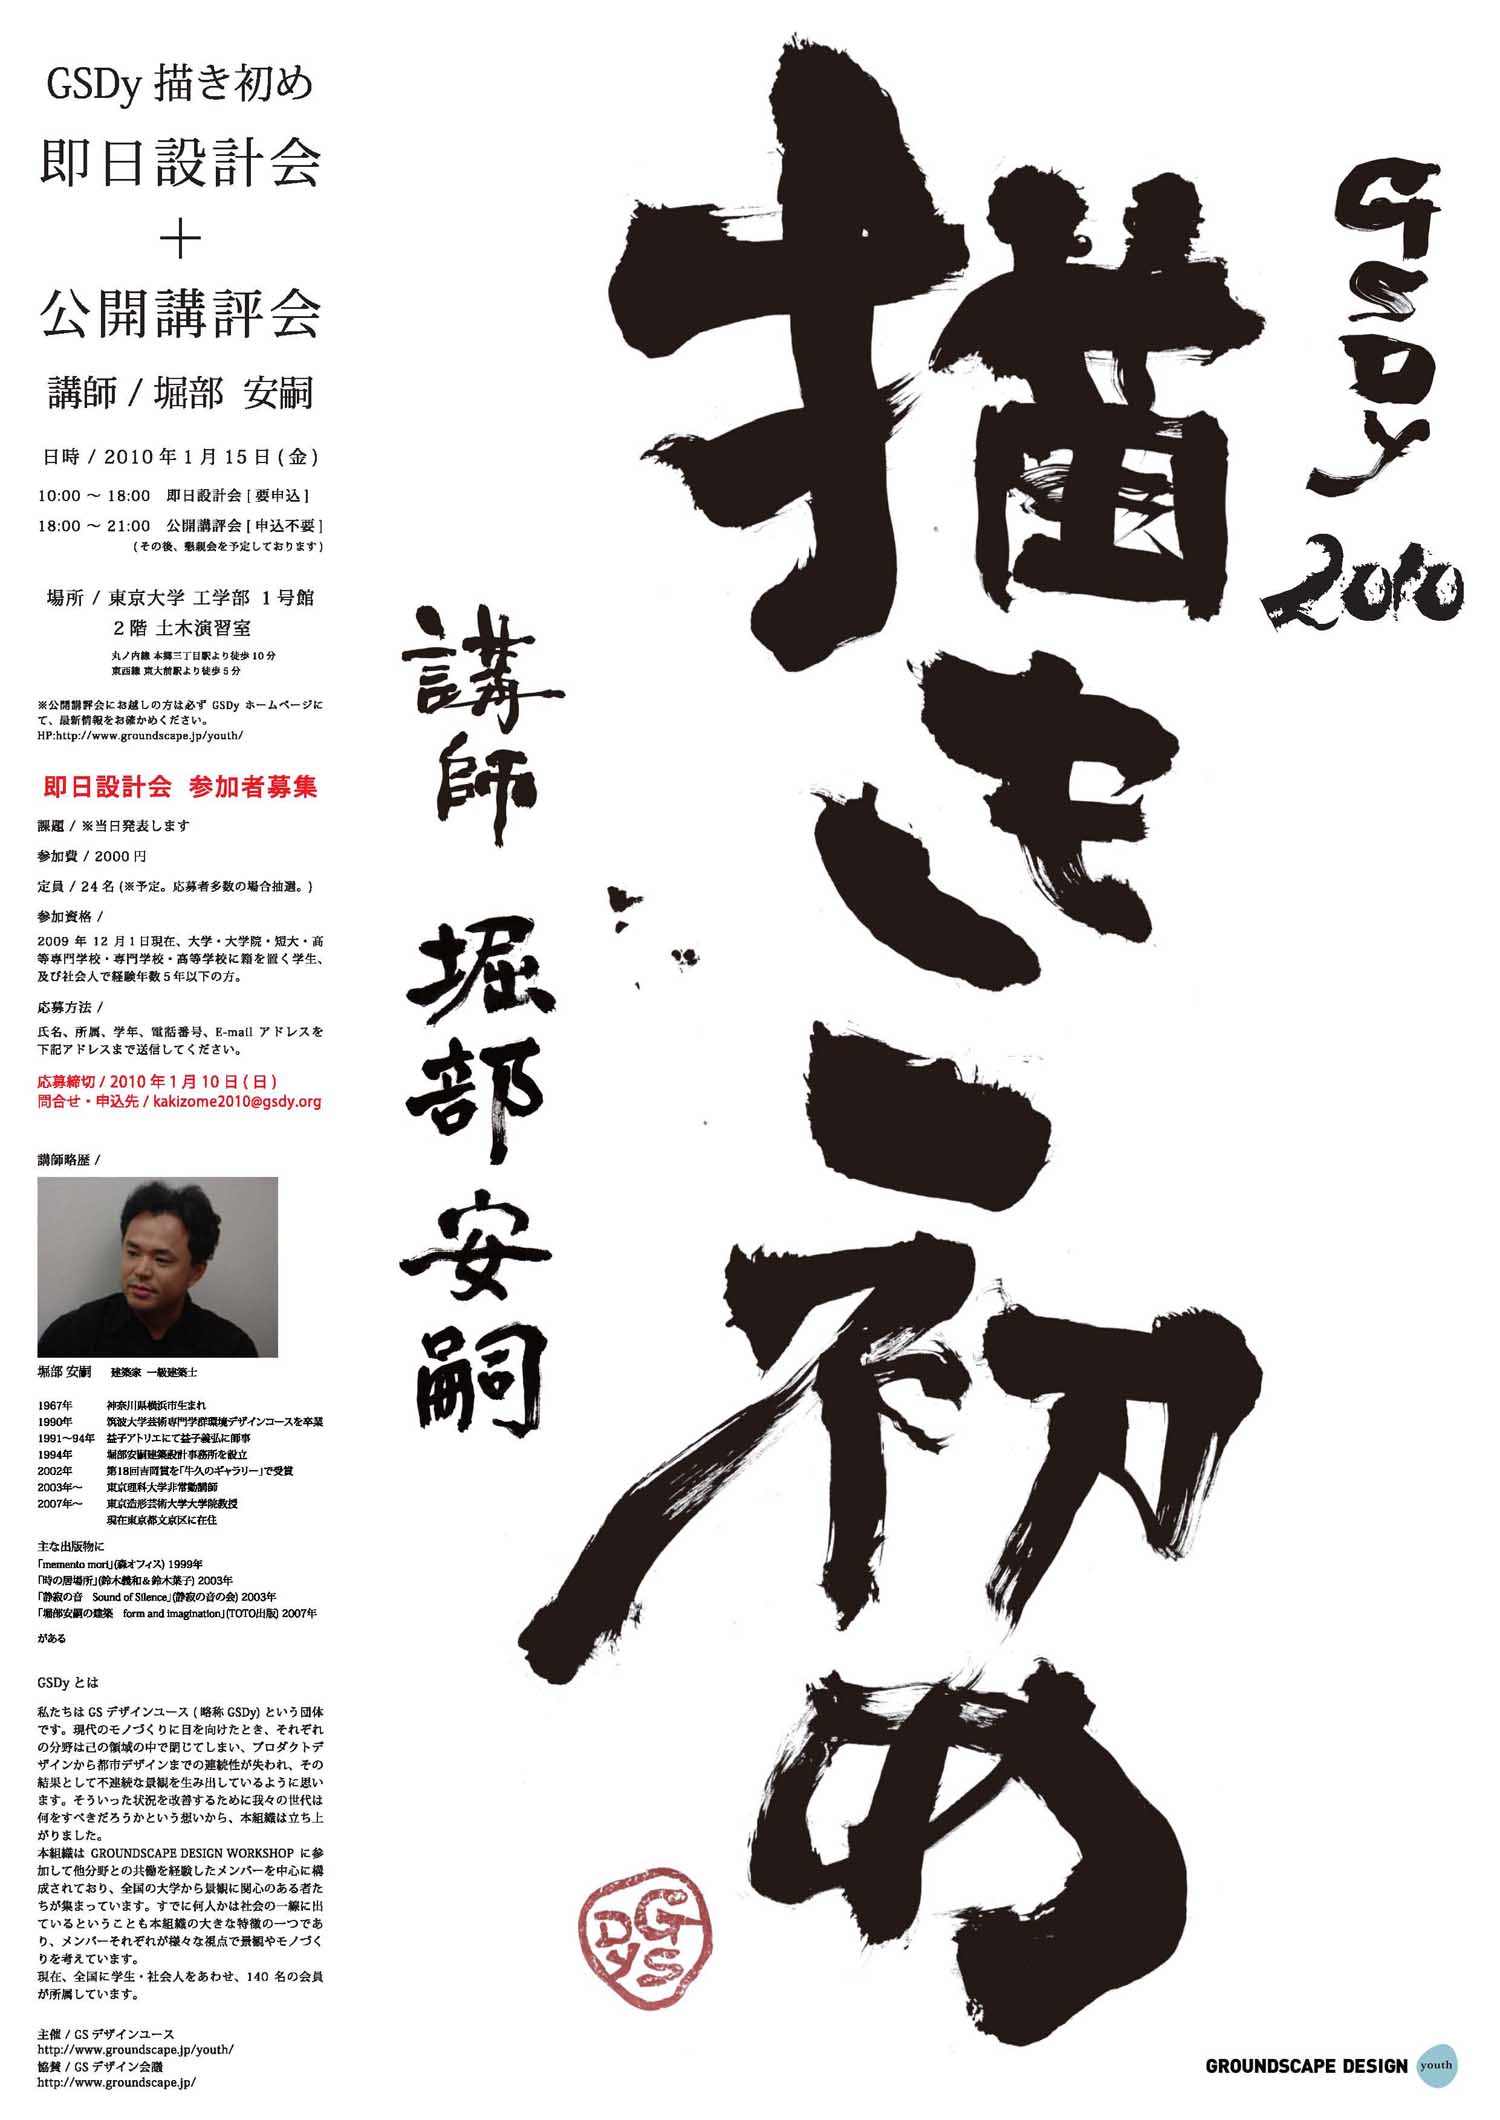 GSDy 描き初め
即日設計会
＋
公開講評会
講師 / 堀部 安嗣
日時 / 2010 年 1 月 15 日 ( 金 )
10:00 ～ 18:00 即日設計会 [ 要申込 ]
18:00 ～ 21:00 公開講評会 [ 申込不要 ]
( その後、懇親会を予定しております )
場所 / 東京大学 工学部 1 号館
2 階 土木演習室
丸ノ内線 本郷三丁目駅より徒歩 10 分
東西線 東大前駅より徒歩 5 分
※公開講評会にお越しの方は必ず GSDy ホームページに
て、最新情報をお確かめください。
HP:http://www.groundscape.jp/youth/
即日設計会 参加者募集
課題 / ※当日発表します
参加費 / 2000 円
定員 / 24 名 (※予定。応募者多数の場合抽選。)
参加資格 /
2009 年 12 月 1 日現在、大学・大学院・短大・高
等専門学校・専門学校・高等学校に籍を置く学生、
及び社会人で経験年数 5 年以下の方。
応募方法 /
氏名、所属、学年、電話番号、E-mail アドレスを
下記アドレスまで送信してください。
応募締切 / 2010 年 1 月 10 日 ( 日 )
問合せ・申込先 / kakizome2010@gsdy.org
講師略歴 /
堀部 安嗣 建築家 一級建築士
1967年 神奈川県横浜市生まれ
1990年 筑波大学芸術専門学群環境デザインコースを卒業
1991～94年 益子アトリエにて益子義弘に師事
1994年 堀部安嗣建築設計事務所を設立
2002年 第18回吉岡賞を「牛久のギャラリー」で受賞
2003年～ 東京理科大学非常勤講師
2007年～ 東京造形芸術大学大学院教授
現在東京都文京区に在住
主な出版物に
「memento mori」(森オフィス) 1999年
「時の居場所」(鈴木義和＆鈴木葉子) 2003年
「静寂の音 Sound of Silence」(静寂の音の会) 2003年
「堀部安嗣の建築 form and imagination」(TOTO出版) 2007年
がある
GSDy とは
私たちは GS デザインユース ( 略称 GSDy) という団体
です。現代のモノづくりに目を向けたとき、それぞれ
の分野は己の領域の中で閉じてしまい、プロダクトデ
ザインから都市デザインまでの連続性が失われ、その
結果として不連続な景観を生み出しているように思い
ます。そういった状況を改善するために我々の世代は
何をすべきだろうかという想いから、本組織は立ち上
がりました。
本組織は GROUNDSCAPE DESIGN WORKSHOP に参
加して他分野との共働を経験したメンバーを中心に構
成されており、全国の大学から景観に関心のある者た
ちが集まっています。すでに何人かは社会の一線に出
ているということも本組織の大きな特徴の一つであ
り、メンバーそれぞれが様々な視点で景観やモノづく
りを考えています。
現在、全国に学生・社会人をあわせ、140 名の会員
が所属しています。
主催 / GS デザインユース
http://www.groundscape.jp/youth/
協賛 / GS デザイン会議
http://www.groundscape.jp/
GSDy
2010
描き初め
講師 堀部安嗣
GSDy
GROUNDSCAPE DESIGN youth